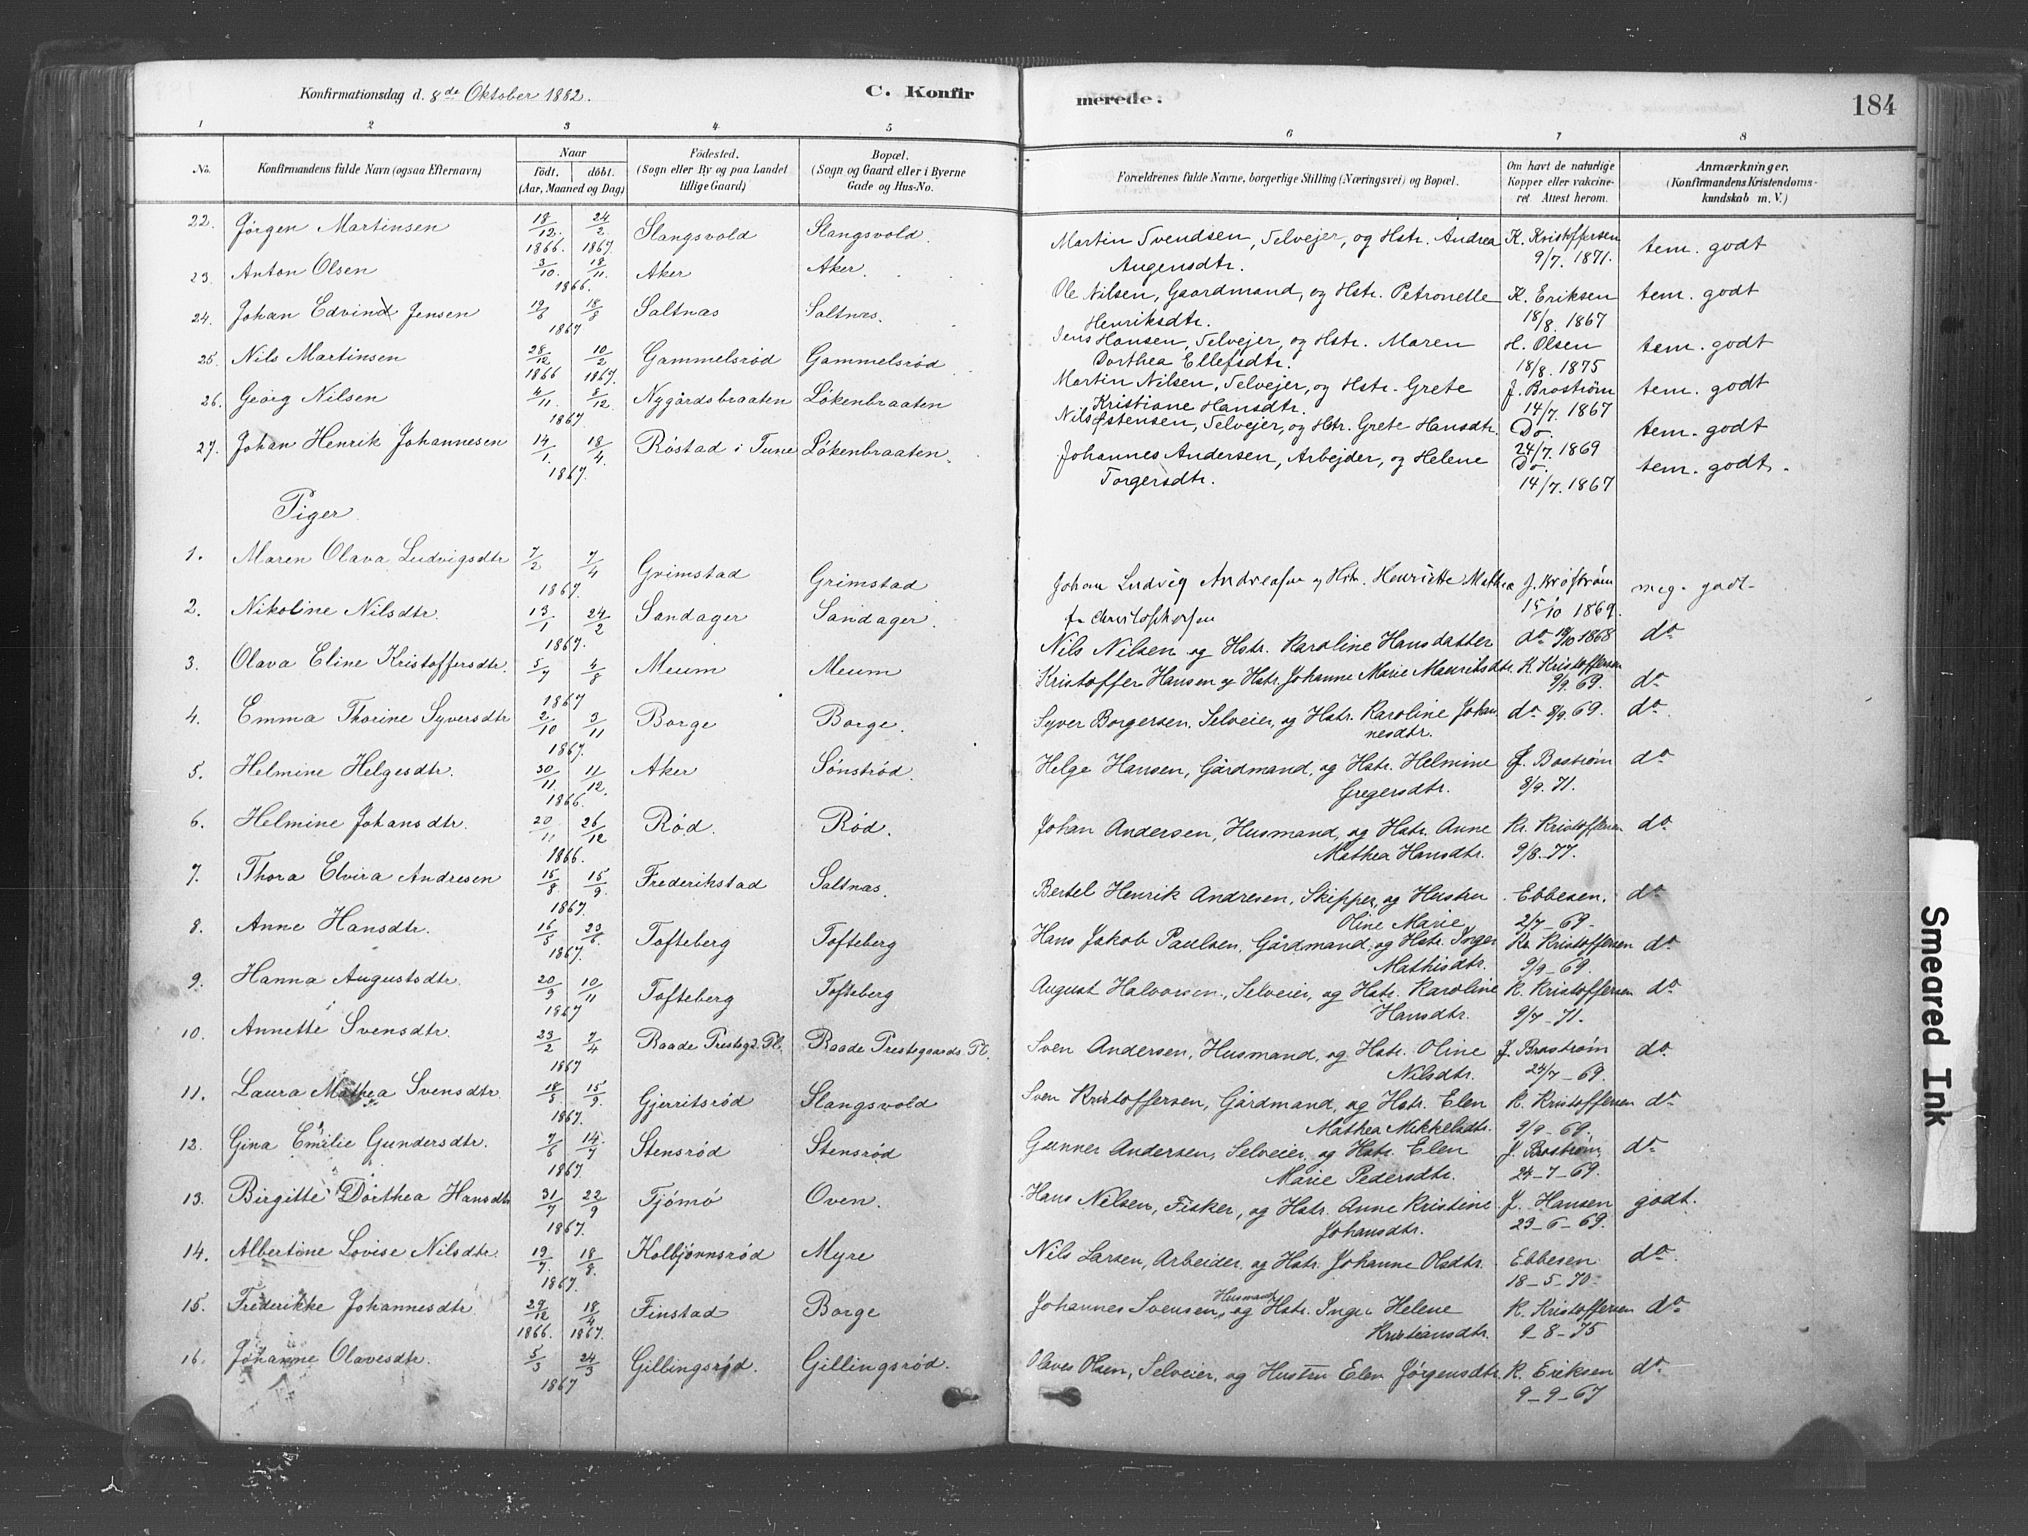 Konfirmationsdag d. 8de Oktober 1882. C. Konfir
merede. 184
1 2 3 4 5 6 7 8
No. Konfirmandens fulde Navn (ogsaa Efternavn) Naar födt. döbt. (Aar, Maaned og Dag) Födested. (Sogn eller By og paa Landet tillige Gaard) Bopæl. (Sogn og Gaard eller i Byerne Gade og Hus-No.
Forældrenes fulde Navne, borgerlige Stilling (Næringsvei) og Bopæl. Om havt de naturlige Kopper eller vakcineret. Attest herom. Anmærkninger. (Konfirmandens Kristendomskundskab m. V.)
22. Jørgen Martinsen 18/12. 1866. 24/2. 1867. Slangsvold Slangsvold. Martin Svendsen, Selvejer, og Hstr. Andrea Augensdtr. K. Kristoffersen 9/7. 1871. tem. godt
23. Anton Olsen 3/10. 18/11. 1866. Aker Aker. Ole Nilsen, Gaardmand, og Hstr. Petronelle Henriksdtr. K. Eriksen 18/8. 1867 tem. godt
24. Johan Edvind Jensen 19/6 18/8 1867 Saltnæs Saltnæs. Jens Hansen, Selvejer, og Hstr. Maren Dorthea Ellefsdtr. H. Olsen 18/8. 1875 tem. godt
25. Nils Martinsen 28/12 1866 10/2 1867. Gammelsrød Gammelsrød Martin Nilsen, Selvejer, og Hstr. Grete Kristiane Hansdtr. J. Brostrøm 14/7. 1867 tem. godt
26. Georg Nilsen 4/11. 8/12. 1867. Nygårdsbraaten Løkenbraaten Nils Østensen, Selvejer, og Hstr. Grete Hansdtr. Do. 24/7. 1869 tem. godt
27. Johan Henrik Johannesen 14/1. 18/4. 1867. Røstad i Tune Løkenbraaten. Johannes Andersen, Arbejder, og Helene Torgersdtr. Do. 14/7. 1867 tem. godt.
Piger
1. Maren Olava Ludvigsdtr 7/2 7/4 1867. Grimstad Grimstad Johan Ludvig Andreasen og Hstr. Henriette Mathea f. Christophersen 15/10 1869. meg. godt
2. Nikoline Nilsdtr. 13/1 24/2 1867. Sandager Sandager. Nils Nilsen og Hstr. Karoline Hansdatter do 1868 do
3. Olava Eline Kristoffersdtr. 5/7 4/8 1867 Meum Meum Kristoffer Hansen og Hstr. Johanne Marie Mauritsdtr. K. Kristoffersen 9/9. 69. do
4. Emma Thorine Syversdtr 2/10 3/11 1867. Borge Borge. Syver Borgersen, Selveier, og Hstr. Karoline Johannesdtr. do 8/9. 69. do
5. Helmine Helgesdtr. 30/11 11/12. 1866. Aker Sønstrød. Helge Hansen, Gårdmand, og Hstr. Helmine Gregersdtr. J. Brostrøm 8/9. 71. do
6. Helmine Johansdtr. 20/11 26/12 1866. Rød. Rød. Johan Andersen, Husmand, og Hstr. Anne Mathea Hansdtr. Kr. Kristoffersen 9/8-77. do
7. Thora Elvira Andresen 15/8 15/9. 1867. Frederikstad Saltnæs. Bertel Henrik Andresen, Skipper, og Hustru Oline Marie Ebbesen. 2/7-69. do
8. Anne Hansdtr. 16/5 23/6. 1867. Tofteberg Tofteberg Hans Jakob Paulsen, Gårdmand, og Hstr. Inger Mathisdtr. Kr. Kristoffersen 9/9-69. do
9. Hanna Augustsdtr. 20/9 10/11 1867 Tofteberg Tofteberg August Halvorsen, Selveier, og Hstr. Karoline Hansdtr. K. Kristoffersen 9/7-71. do
10. Annette Svensdtr. 23/2 7/4 1867 Raade Prestegd. Pl. Raade Prestegaards. Pl. Sven Andersen, Husmand, og Hstr. Oline Nilsdtr. J. Brostrøm 24/7-69. do
11. Laura Mathea Svensdtr. 18/5 15/9. 1867. Gjerritsrød Slangsvold Sven Kristoffersen, Gårdmand, og Hstr. Elen Mathea Mikkelsdtr. K. Kristoffersen 9/9-69. do
12. Gina Emilie Gundersdtr. 7/6 14/7 1867. Stensrød Stensrød Gunner Andersen, Selveier, og Hstr. Elen Marie Pedersdtr. J. Brostrøm, 24-7-69. do
13. Birgitte Dorthea Hansdtr 31/7 22/9 1867. Tjømø Oven. Hans Nilsen, Fisker, og Hstr. Anne Kristine Johansdtr. J. Hansen 23-6-69. godt.
14. Albertine Lovise Nilsdtr. 19/7. 18/8. 1867. Kolbjørnsrød Myre Nils Larsen, Arbeider, og Hstr. Johanne Olsdtr. Ebbesen 18-5-70. do
15. Frederikke Johannesdtr. 29/12 1866. 18/4 1867. Finstad Borge Johannes Svensen, Husmand, og Hstr. Inger Helene Kristiansdtr. K. Kristoffersen 9-8-75 do
16. Johanne Olavesdtr. 5/3 24/3 1867 Gillingsrød. Gillingsrød. Olaves Olsen, Selveier, og Hustru Elen Jørgensdtr. K. Eriksen 9-9-67 do
Smeared Ink